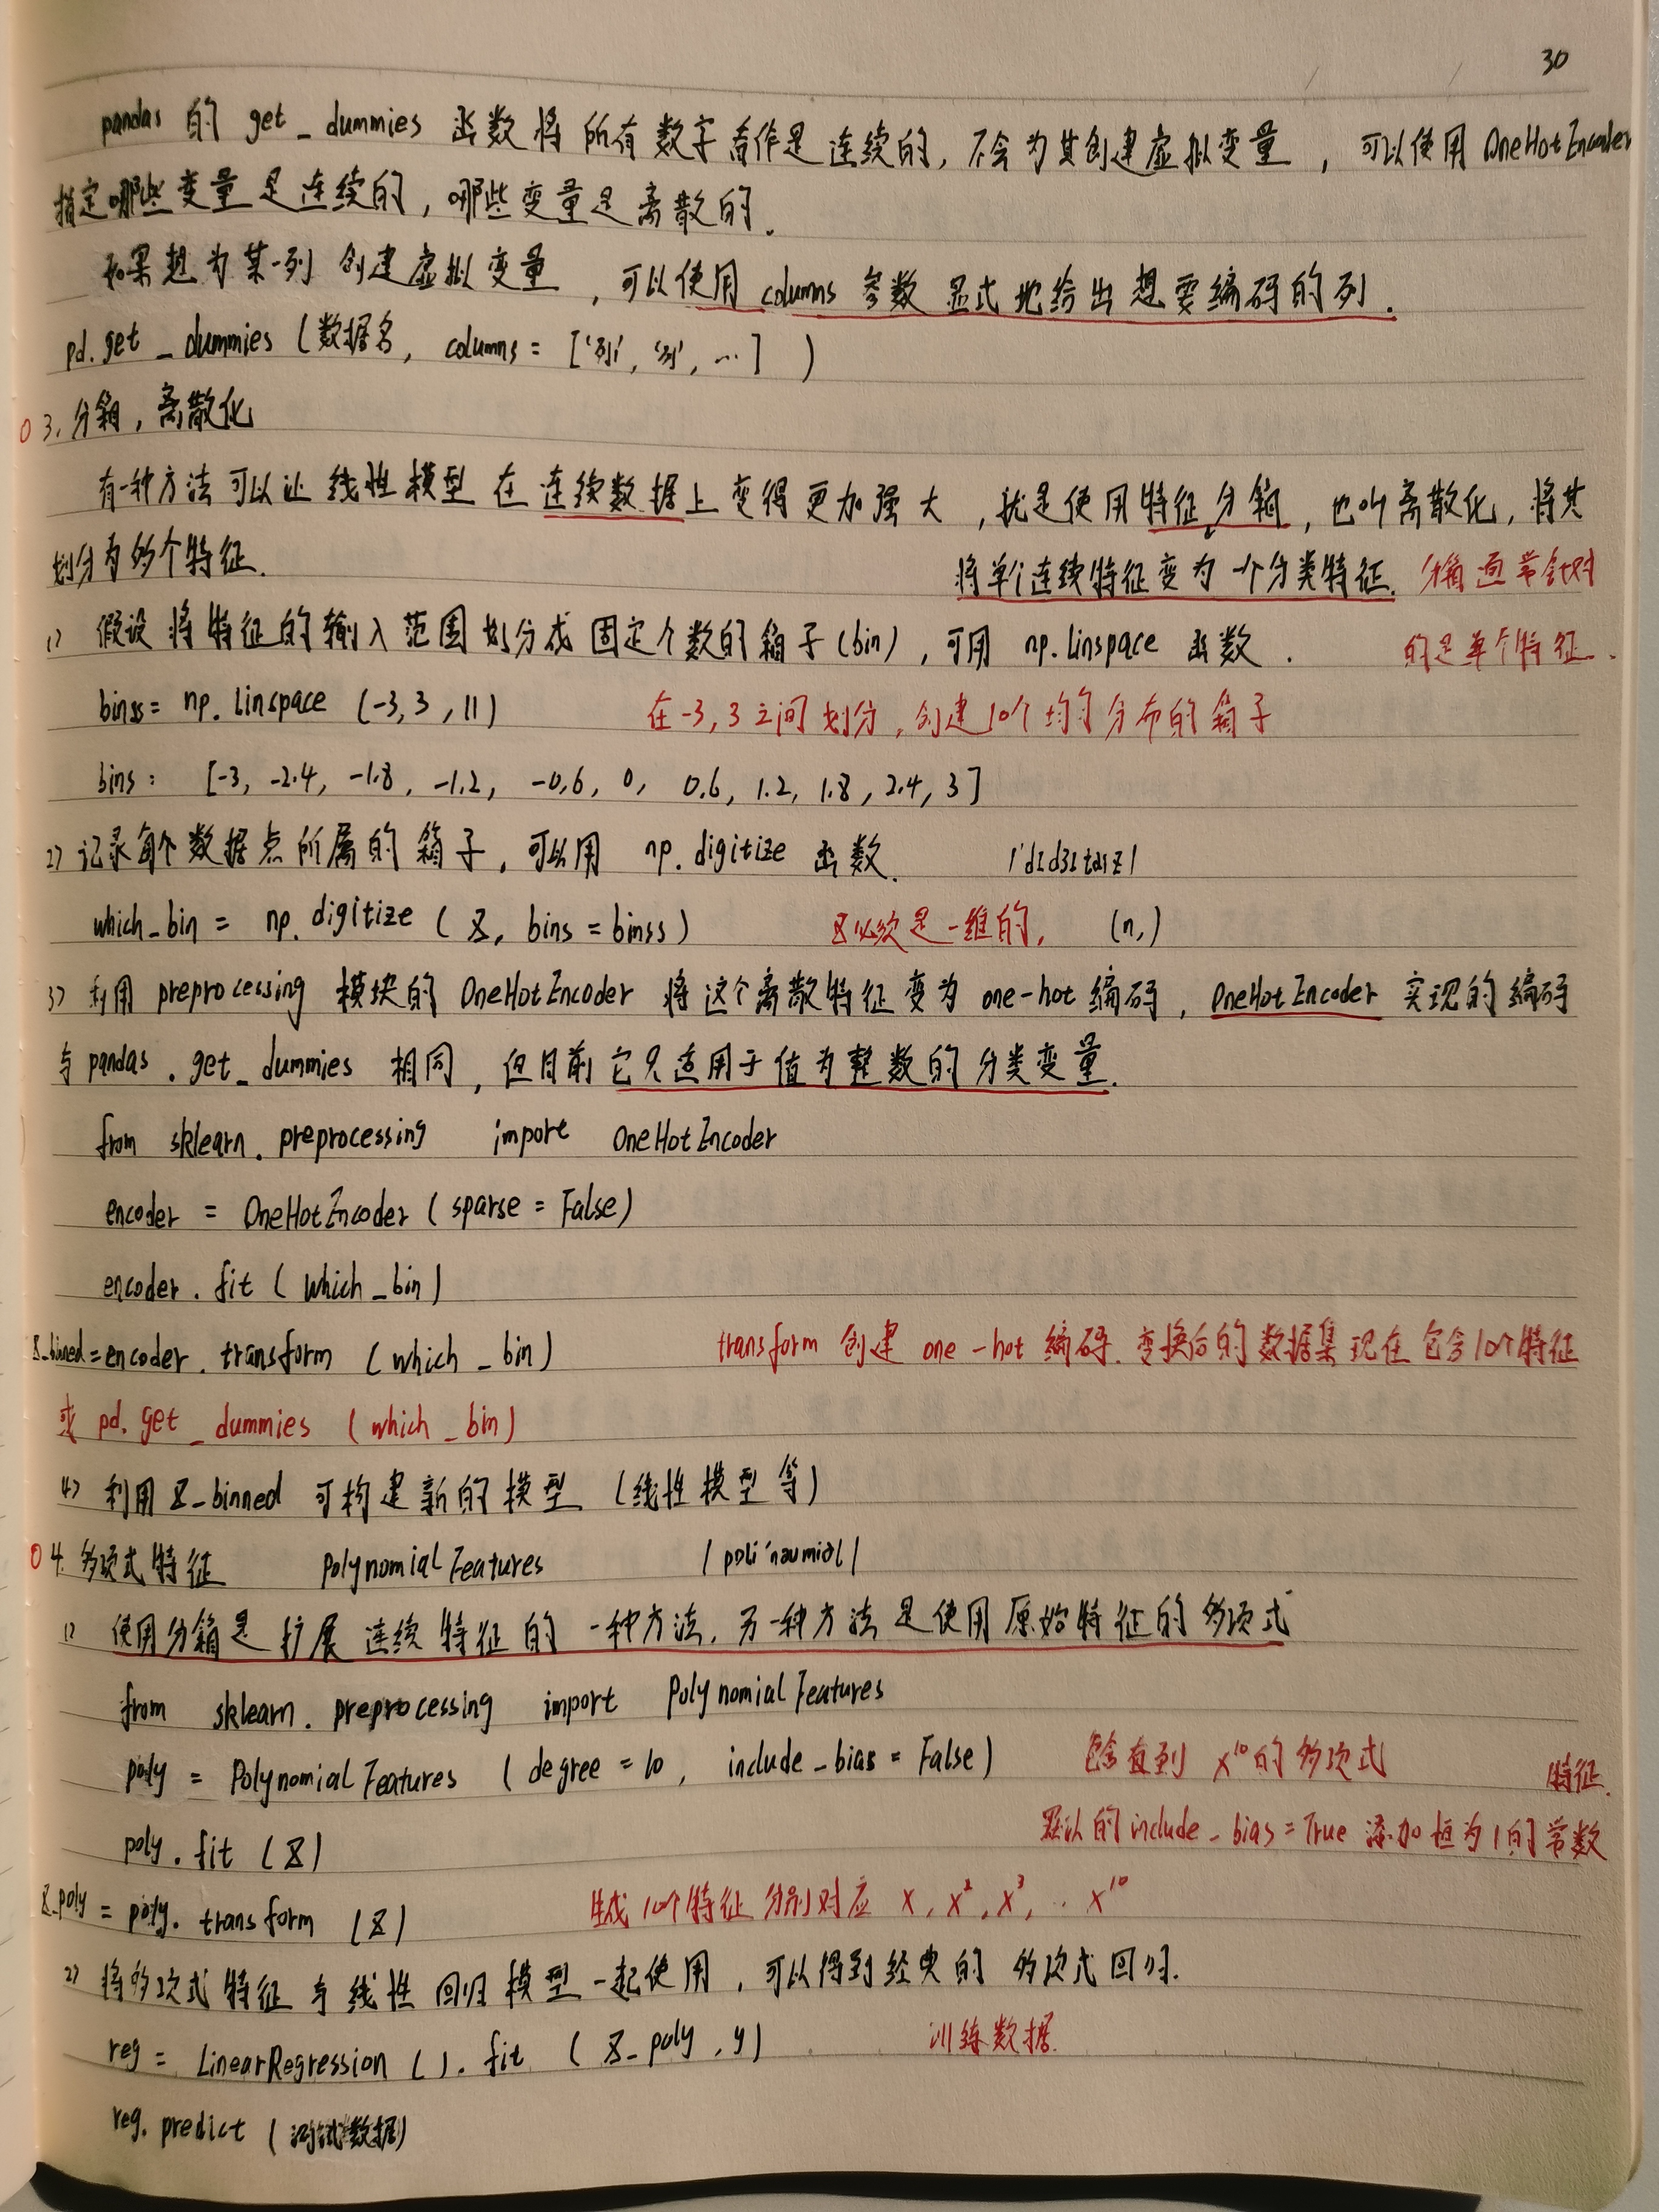 30
pandas 的 get_dummies 函数将所有数字看作是连续的,不会为其创建虚拟变量,可以使用 OneHotEncoder
指定哪些变量是连续的,哪些变量是离散的.
如果想为某一列创建虚拟变量,可以使用 columns 参数显式地给出想要编码的列.
pd.get_dummies (数据名, columns = ['列', '列', …] )
3. 分箱,离散化
有一种方法可以让线性模型在连续数据上变得更加强大,就是使用特征分箱,也叫离散化,将其
划分为多个特征.
将单个连续特征变为一个分类特征. 分箱通常针对
1) 假设将特征的输入范围划分成固定个数的箱子(bin),可用 np.linspace 函数.
的是单个特征.
binss = np.linspace (-3, 3, 11) 在-3, 3之间划分,创建10个均匀分布的箱子
bins: [-3, -2.4, -1.8, -1.2, -0.6, 0, 0.6, 1.2, 1.8, 2.4, 3]
2) 记录每个数据点所属的箱子,可以用 np.digitize 函数. /ˈdɪdʒɪtaɪz/
which_bin = np.digitize ( X, bins = binss) X必须是一维的, (n,)
3) 利用 preprocessing 模块的 OneHotEncoder 将这个离散特征变为 one-hot 编码,OneHotEncoder 实现的编码
与 pandas.get_dummies 相同,但目前它只适用于值为整数的分类变量.
from sklearn.preprocessing import OneHotEncoder
encoder = OneHotEncoder (sparse = False)
encoder.fit (which_bin)
X_binned = encoder.transform (which_bin) transform 创建 one-hot 编码. 变换后的数据集现在包含10个特征
或 pd.get_dummies (which_bin)
4) 利用 X_binned 可构建新的模型 (线性模型等)
4. 多项式特征 PolynomialFeatures /pɒliˈnəʊmiəl/
1) 使用分箱是扩展连续特征的一种方法,另一种方法是使用原始特征的多项式
from sklearn.preprocessing import PolynomialFeatures
poly = PolynomialFeatures (degree = 10, include_bias = False) 包含直到 x¹⁰的多项式
默认的include_bias = True 添加恒为1的常数特征.
poly.fit (X)
X_poly = poly.transform (X) 生成10个特征分别对应 x, x², x³, … x¹⁰
2) 将多项式特征与线性回归模型一起使用,可以得到经典的多项式回归.
reg = LinearRegression ().fit ( X_poly, y) 训练数据.
reg.predict (测试数据)